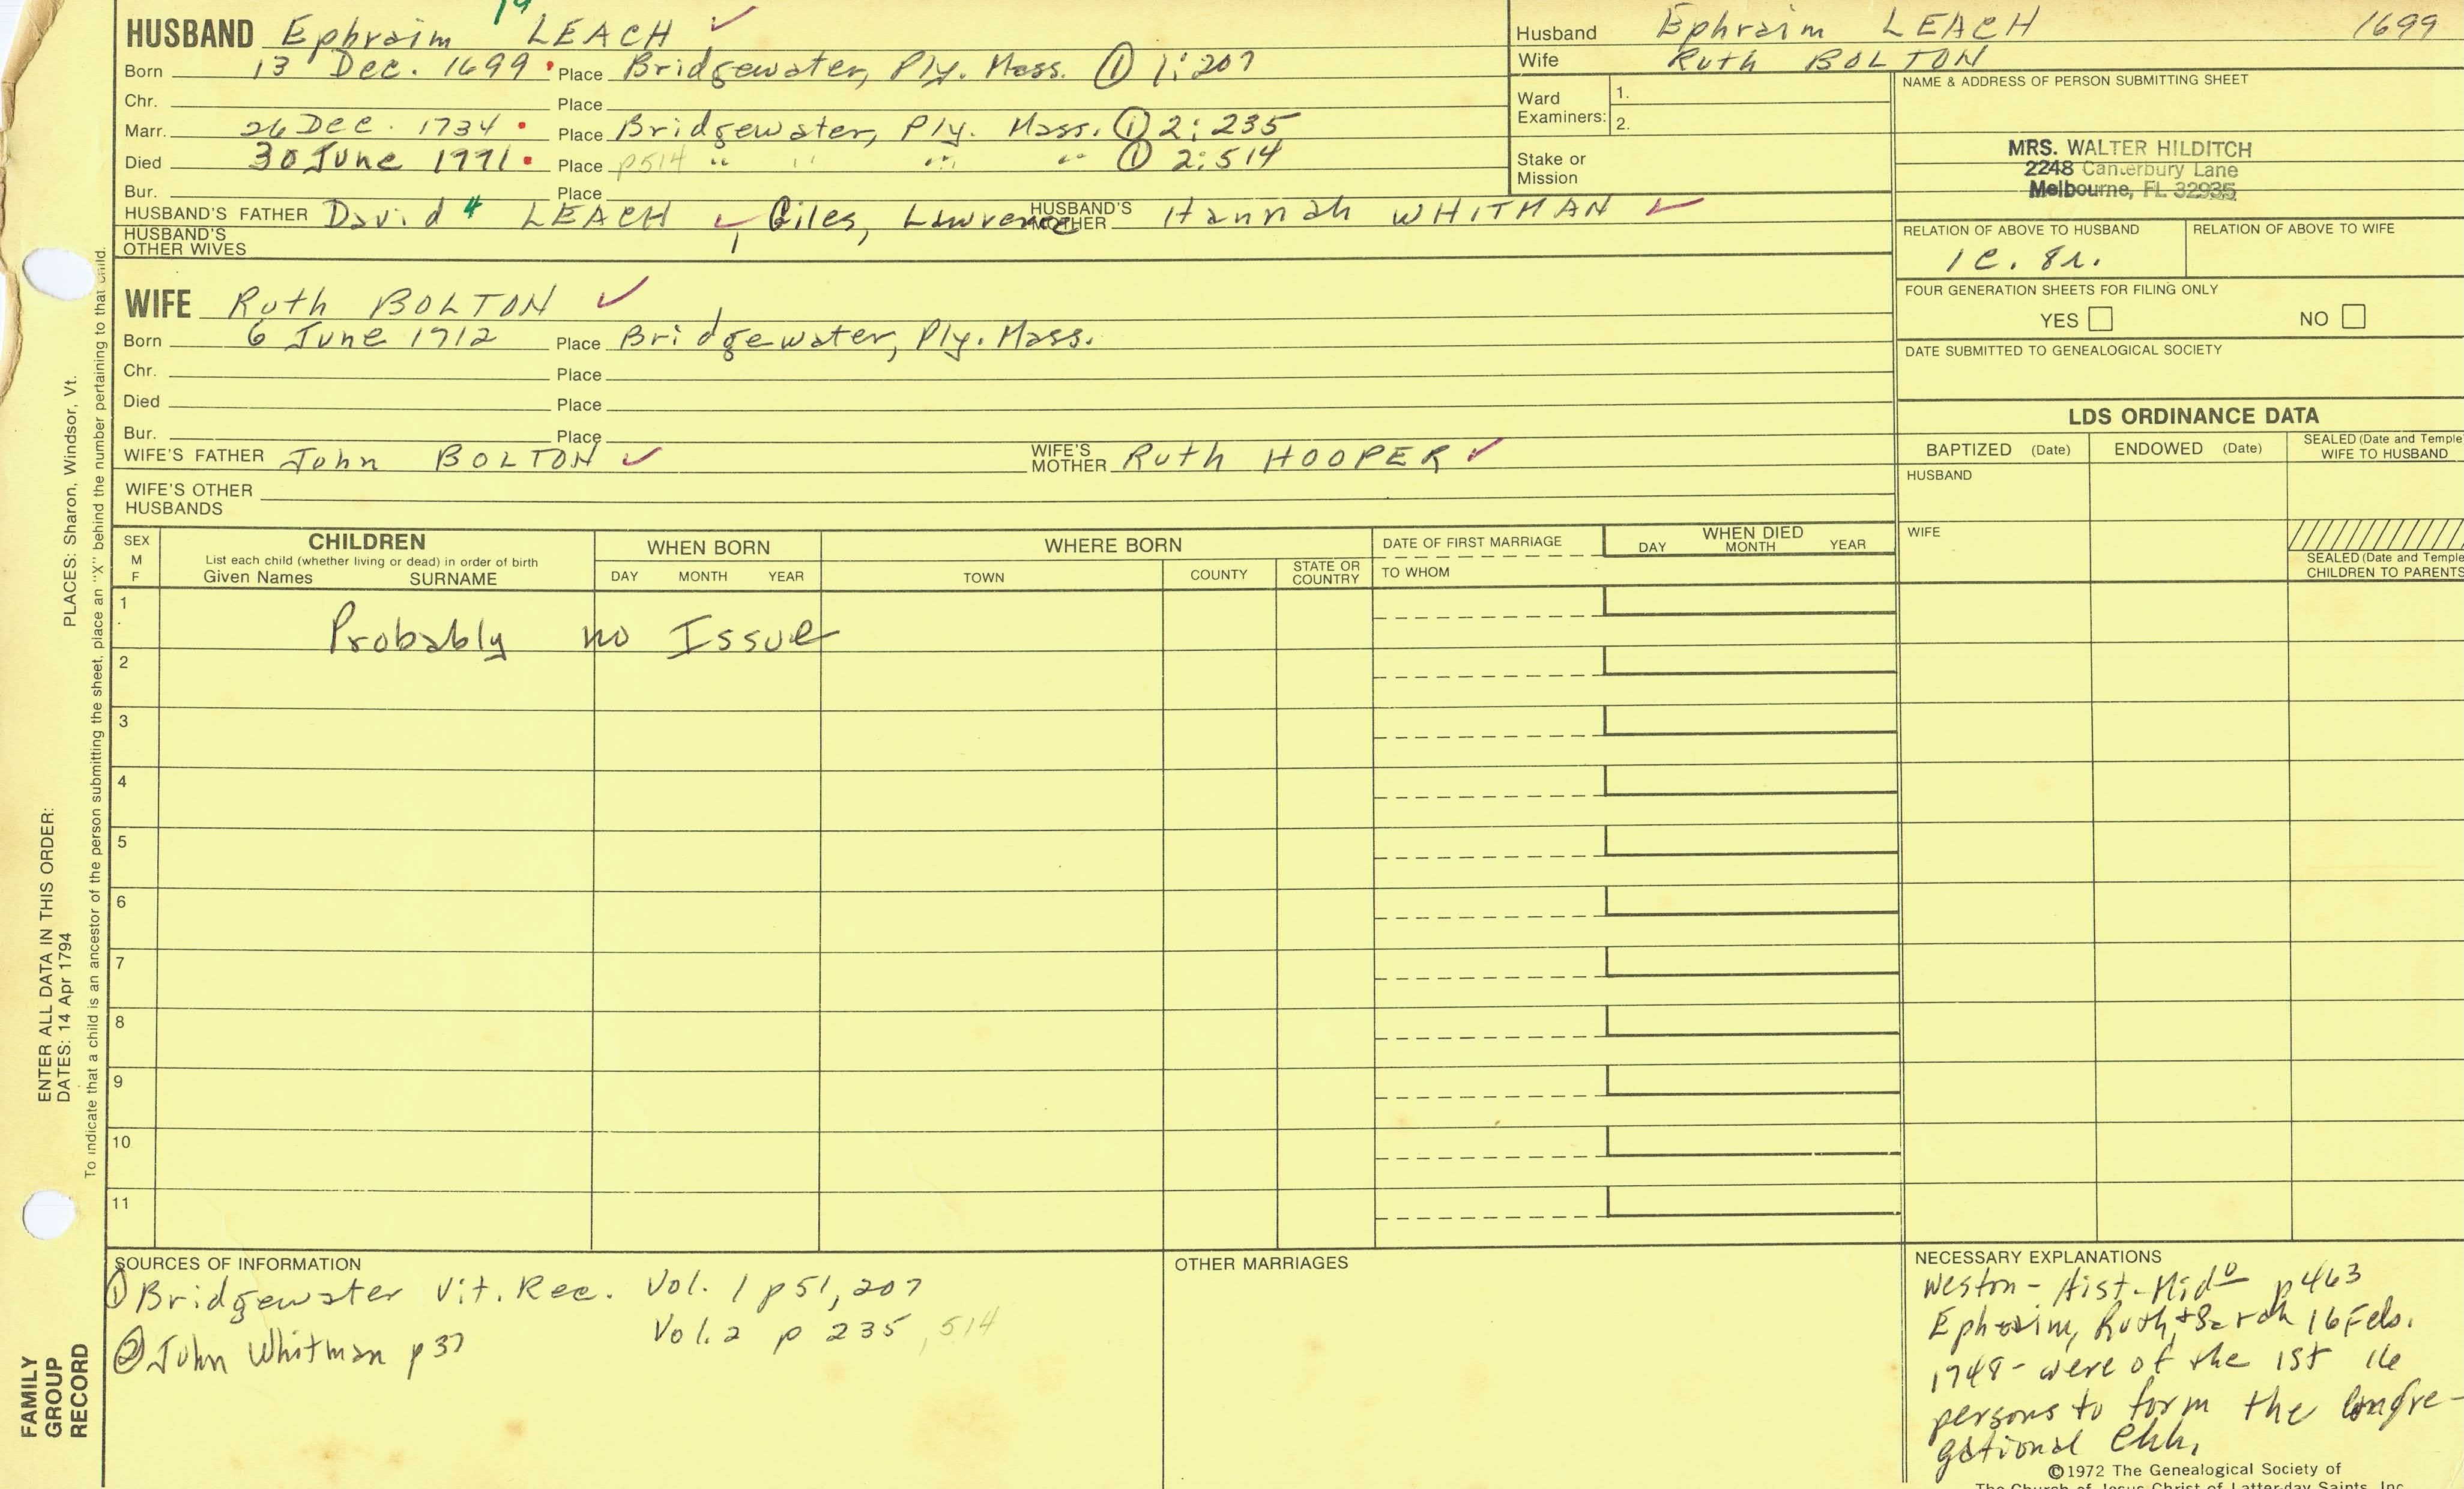 HUSBAND Ephraim LEACH ✓
Born 13 Dec. 1699 Place Bridgewater, Ply. Mass. ① 1:207
Chr. Place
Marr. 26 Dec. 1734 Place Bridgewater, Ply. Mass. ① 2:235
Died 30 June 1771 Place p514 " " " " ① 2:514
Bur. Place
HUSBAND'S FATHER David 4 LEACH ✓, Giles, Lawrence HUSBAND'S MOTHER Hannah WHITMAN ✓
HUSBAND'S OTHER WIVES
Husband Ephraim LEACH 1699
Wife Ruth BOLTON
Ward Examiners: 1.
2.
Stake or Mission
NAME & ADDRESS OF PERSON SUBMITTING SHEET
MRS. WALTER HILDITCH
2248 Canterbury Lane
Melbourne, FL 32935
RELATION OF ABOVE TO HUSBAND RELATION OF ABOVE TO WIFE
1C. 8r.
FOUR GENERATION SHEETS FOR FILING ONLY
YES NO
DATE SUBMITTED TO GENEALOGICAL SOCIETY
WIFE Ruth BOLTON ✓
Born 6 June 1712 Place Bridgewater, Ply. Mass.
Chr. Place
Died Place
Bur. Place
WIFE'S FATHER John BOLTON ✓ WIFE'S MOTHER Ruth HOOPER ✓
WIFE'S OTHER HUSBANDS
LDS ORDINANCE DATA
BAPTIZED (Date) ENDOWED (Date) SEALED (Date and Temple) WIFE TO HUSBAND
HUSBAND
WIFE
SEALED (Date and Temple
CHILDREN TO PARENTS
SEX M F
CHILDREN
List each child (whether living or dead) in order of birth
Given Names SURNAME
WHEN BORN
DAY MONTH YEAR
WHERE BORN
TOWN COUNTY STATE OR COUNTRY
DATE OF FIRST MARRIAGE
TO WHOM
WHEN DIED
DAY MONTH YEAR
1
Probably no Issue
2
3
4
5
6
7
8
9
10
11
SOURCES OF INFORMATION
① Bridgewater Vit. Rec. Vol. 1 p51, 207
Vol. 2 p 235, 514
② John Whitman p37
OTHER MARRIAGES
NECESSARY EXPLANATIONS
Weston - Hist. Mido p463
Ephraim, Ruth, + Sarah 16 Feb.
1748 - were of the 1st 16
persons to form the Congre-
gational Chh.
©1972 The Genealogical Society of
The Church of Jesus Christ of Latter-day Saints, Inc.
PLACES: Sharon, Windsor, Vt.
ENTER ALL DATA IN THIS ORDER:
DATES: 14 Apr 1794
To indicate that a child is an ancestor of the person submitting the sheet, place an "X" behind the number pertaining to that child.
FAMILY
GROUP
RECORD